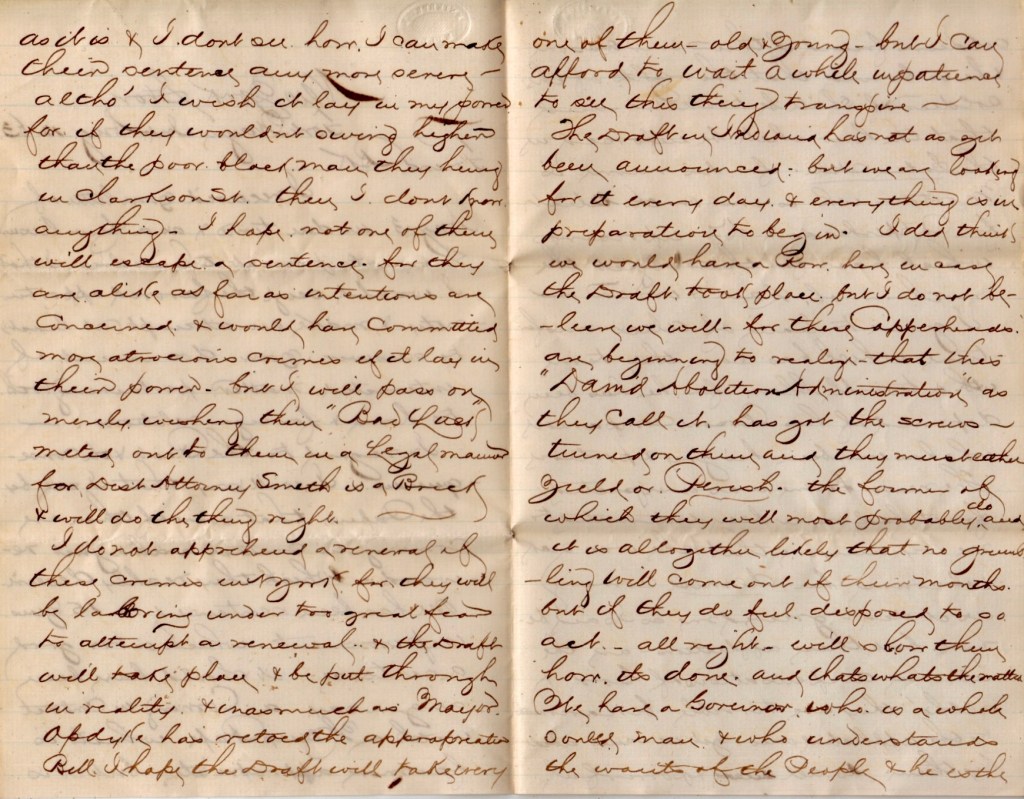 as it is & I. dont see how. I can make
their sentence any more severe -
altho' I wish it lay in my power
for if they wouldnt swing higher
than the poor. black man they hung
in Clarkson St. then I. dont know
anything - I hope. not one of them
will escape a sentence. for they
are alike as far as intentions are
Concerned. & would have Committed
more atrocious crimes if it lay in
their power. but I will pass on
merely wishing them "Bad Luck
meted out to them in a Legal manner
for Dist Attorney Smith is a Brick
& will do the thing right.
I do not apprehend a renewal of
these crimes in N York for they will
be laboring under too great fear
to attempt a renewal. & the Draft
will take place & be put through
in reality. & inasmuch as Mayor.
Opdyke has vetoed the appropriation
Bill I hope the Draft will take every
one of them - old & Young - but I can
afford to wait a while in patience
to see this thing transpire -
The Draft in Indiana has not as yet
been announced. but we are looking
for it every day. & everything is in
preparation to begin. I did think
we would have a Row. here in case
the Draft. took place. but I do not be-
-lieve we will - for these Copperheads.
are beginning to realize that this
"Damd Abolition Administration" as
they Call it. has got the screws -
turned on them and they must either
Yield or. Perish. the former of
which they will most probably do. and
it is altogether likely that no grumb
-ling will come out of their mouths.
but if they do feel disposed to so
act. - all right - will show them
how. its done. and thats whats the matter
We have a Governor. who. is a whole
Souled man. & who understands
the wants of the People & he is the